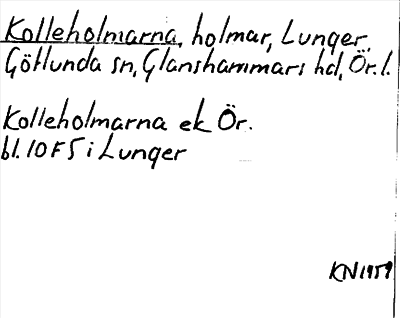 Kolleholmarna, holmar, Lunger,
Götlunda sn, Glanshammars hd, Ör. l.
Kolleholmarna ek Ör.
bl. 10 F 5 i Lunger
KN 1959